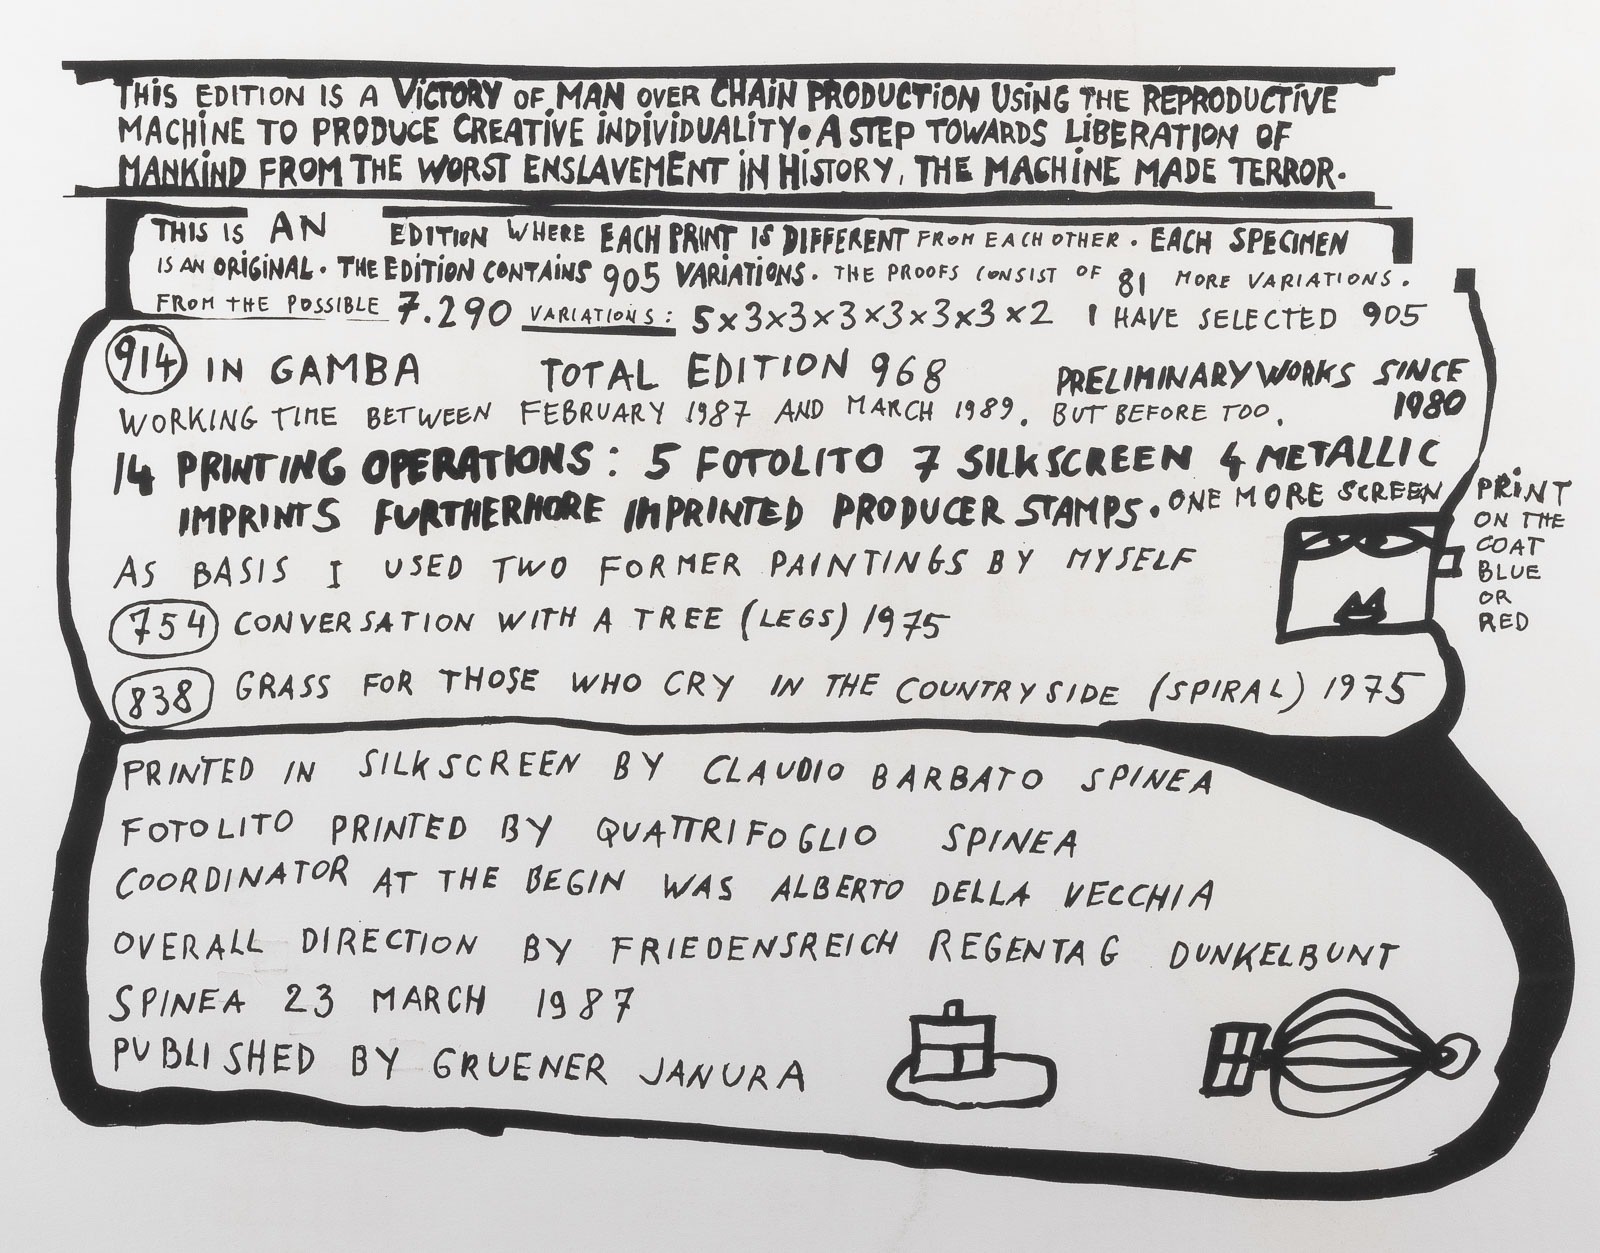 THIS EDITION IS A VICTORY OF MAN OVER CHAIN PRODUCTION USING THE REPRODUCTIVE
MACHINE TO PRODUCE CREATIVE INDIVIDUALITY. A STEP TOWARDS LIBERATION OF
MANKIND FROM THE WORST ENSLAVEMENT IN HISTORY, THE MACHINE MADE TERROR.
THIS IS AN EDITION WHERE EACH PRINT IS DIFFERENT FROM EACH OTHER. EACH SPECIMEN
IS AN ORIGINAL. THE EDITION CONTAINS 905 VARIATIONS. THE PROOFS CONSIST OF 81 MORE VARIATIONS.
FROM THE POSSIBLE 7.290 VARIATIONS: 5x3x3x3x3x3x3x2 I HAVE SELECTED 905
914 IN GAMBA TOTAL EDITION 968 PRELIMINARY WORKS SINCE 1980
WORKING TIME BETWEEN FEBRUARY 1987 AND MARCH 1989. BUT BEFORE TOO.
14 PRINTING OPERATIONS: 5 FOTOLITO 7 SILKSCREEN 4 METALLIC
IMPRINTS FURTHERMORE IMPRINTED PRODUCER STAMPS. ONE MORE SCREEN
PRINT
ON THE
COAT
BLUE
OR
RED
AS BASIS I USED TWO FORMER PAINTINGS BY MYSELF
754 CONVERSATION WITH A TREE (LEGS) 1975
838 GRASS FOR THOSE WHO CRY IN THE COUNTRYSIDE (SPIRAL) 1975
PRINTED IN SILKSCREEN BY CLAUDIO BARBATO SPINEA
FOTOLITO PRINTED BY QUATTRIFOGLIO SPINEA
COORDINATOR AT THE BEGIN WAS ALBERTO DELLA VECCHIA
OVERALL DIRECTION BY FRIEDENSREICH REGENTAG DUNKELBUNT
SPINEA 23 MARCH 1987
PUBLISHED BY GRUENER JANURA